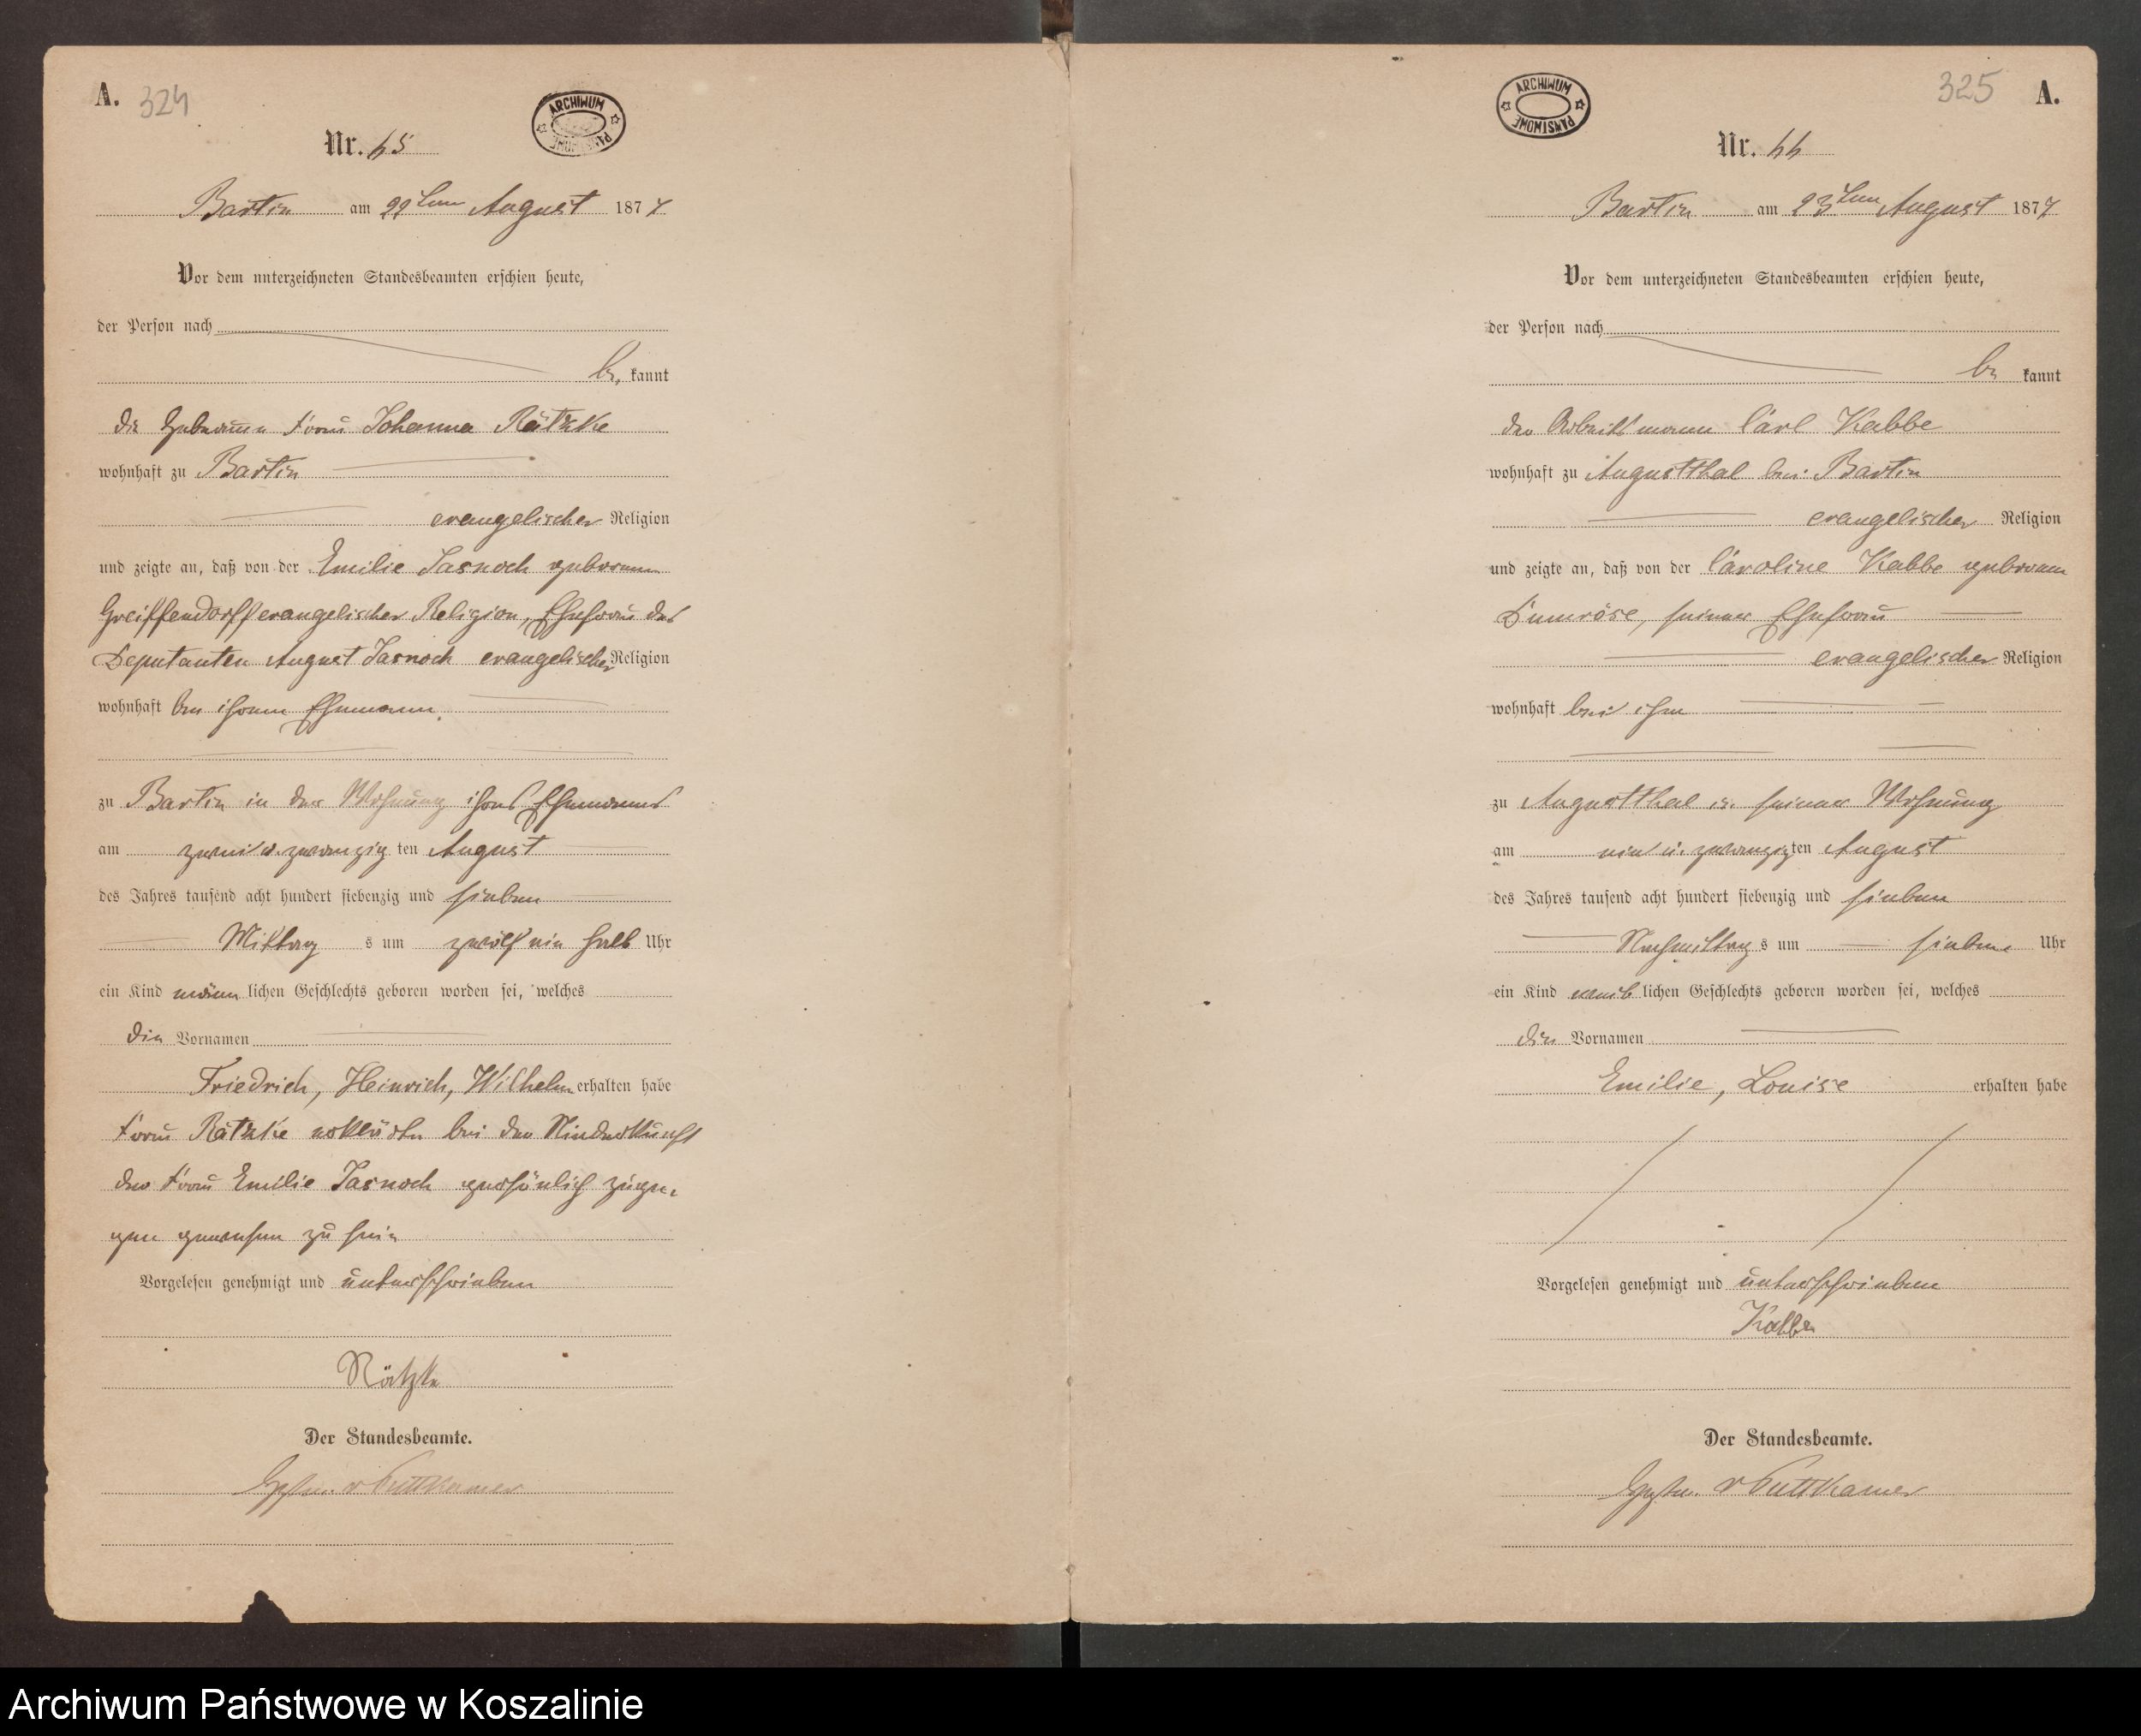 A. 324
ARCHIWUM PAŃSTWOWE
Nr. 65
Bartin am 22ten August 1877
Vor dem unterzeichneten Standesbeamten erschien heute,
der Person nach
be kannt
die Hebamme Frau Johanna Rätzke
wohnhaft zu Bartin
evangelischer Religion
und zeigte an, daß von der Emilie Jasnoch geborenen
Greiffendorff evangelischer Religion, Ehefrau des
Deputanten August Jasnoch evangelischer Religion
wohnhaft bei ihrem Ehemann.
zu Bartin in der Wohnung ihres Ehemannes
am zwei u. zwanzig ten August
des Jahres tausend acht hundert siebenzig und sieben
Mittag s um zwölf ein halb Uhr
ein Kind männ lichen Geschlechts geboren worden sei, welches
die Vornamen
Friedrich, Heinrich, Wilhelm erhalten habe
Frau Rätzke erklärte bei der Niederkunft
der Frau Emilie Jasnoch persönlich zuge-
gen gewesen zu sein
Vorgelesen genehmigt und unterschrieben
Rätzke
Der Standesbeamte.
v Puttkamer
325 A.
ARCHIWUM PAŃSTWOWE
Nr. 66
Bartin am 23ten August 1877
Vor dem unterzeichneten Standesbeamten erschien heute,
der Person nach
be kannt
der Arbeitsmann Carl Kabbe
wohnhaft zu Augustthal bei Bartin
evangelischer Religion
und zeigte an, daß von der Caroline Kabbe geborenen
Dumröse, seiner Ehefrau
evangelischer Religion
wohnhaft bei ihm
zu Augustthal in seiner Wohnung
am ein u. zwanzig ten August
des Jahres tausend acht hundert siebenzig und sieben
Nachmittag s um sieben Uhr
ein Kind weib lichen Geschlechts geboren worden sei, welches
die Vornamen
Emilie, Louise erhalten habe
Vorgelesen genehmigt und unterschrieben
Kabbe
Der Standesbeamte.
v Puttkamer
Archiwum Państwowe w Koszalinie